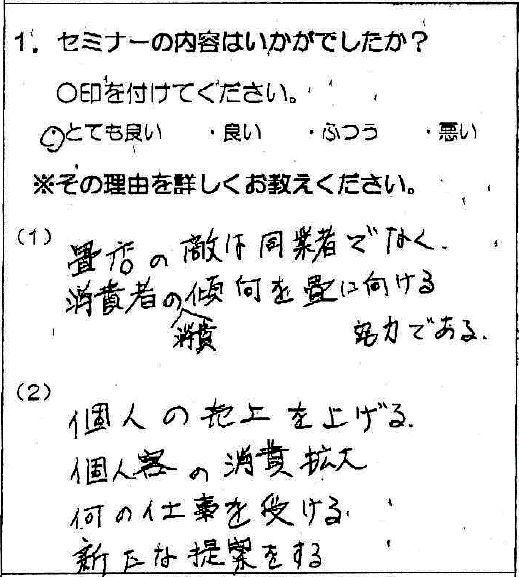 1. セミナーの内容はいかがでしたか？
〇印を付けてください。
・とても良い ・良い ・ふつう ・悪い
※その理由を詳しくお教えください。
(1)
畳店の敵は同業者でなく、
消費者の傾向を畳に向ける
消費
努力である。
(2)
個人の売上を上げる。
個人客の消費拡大
何の仕事を受ける。
新たな提案をする